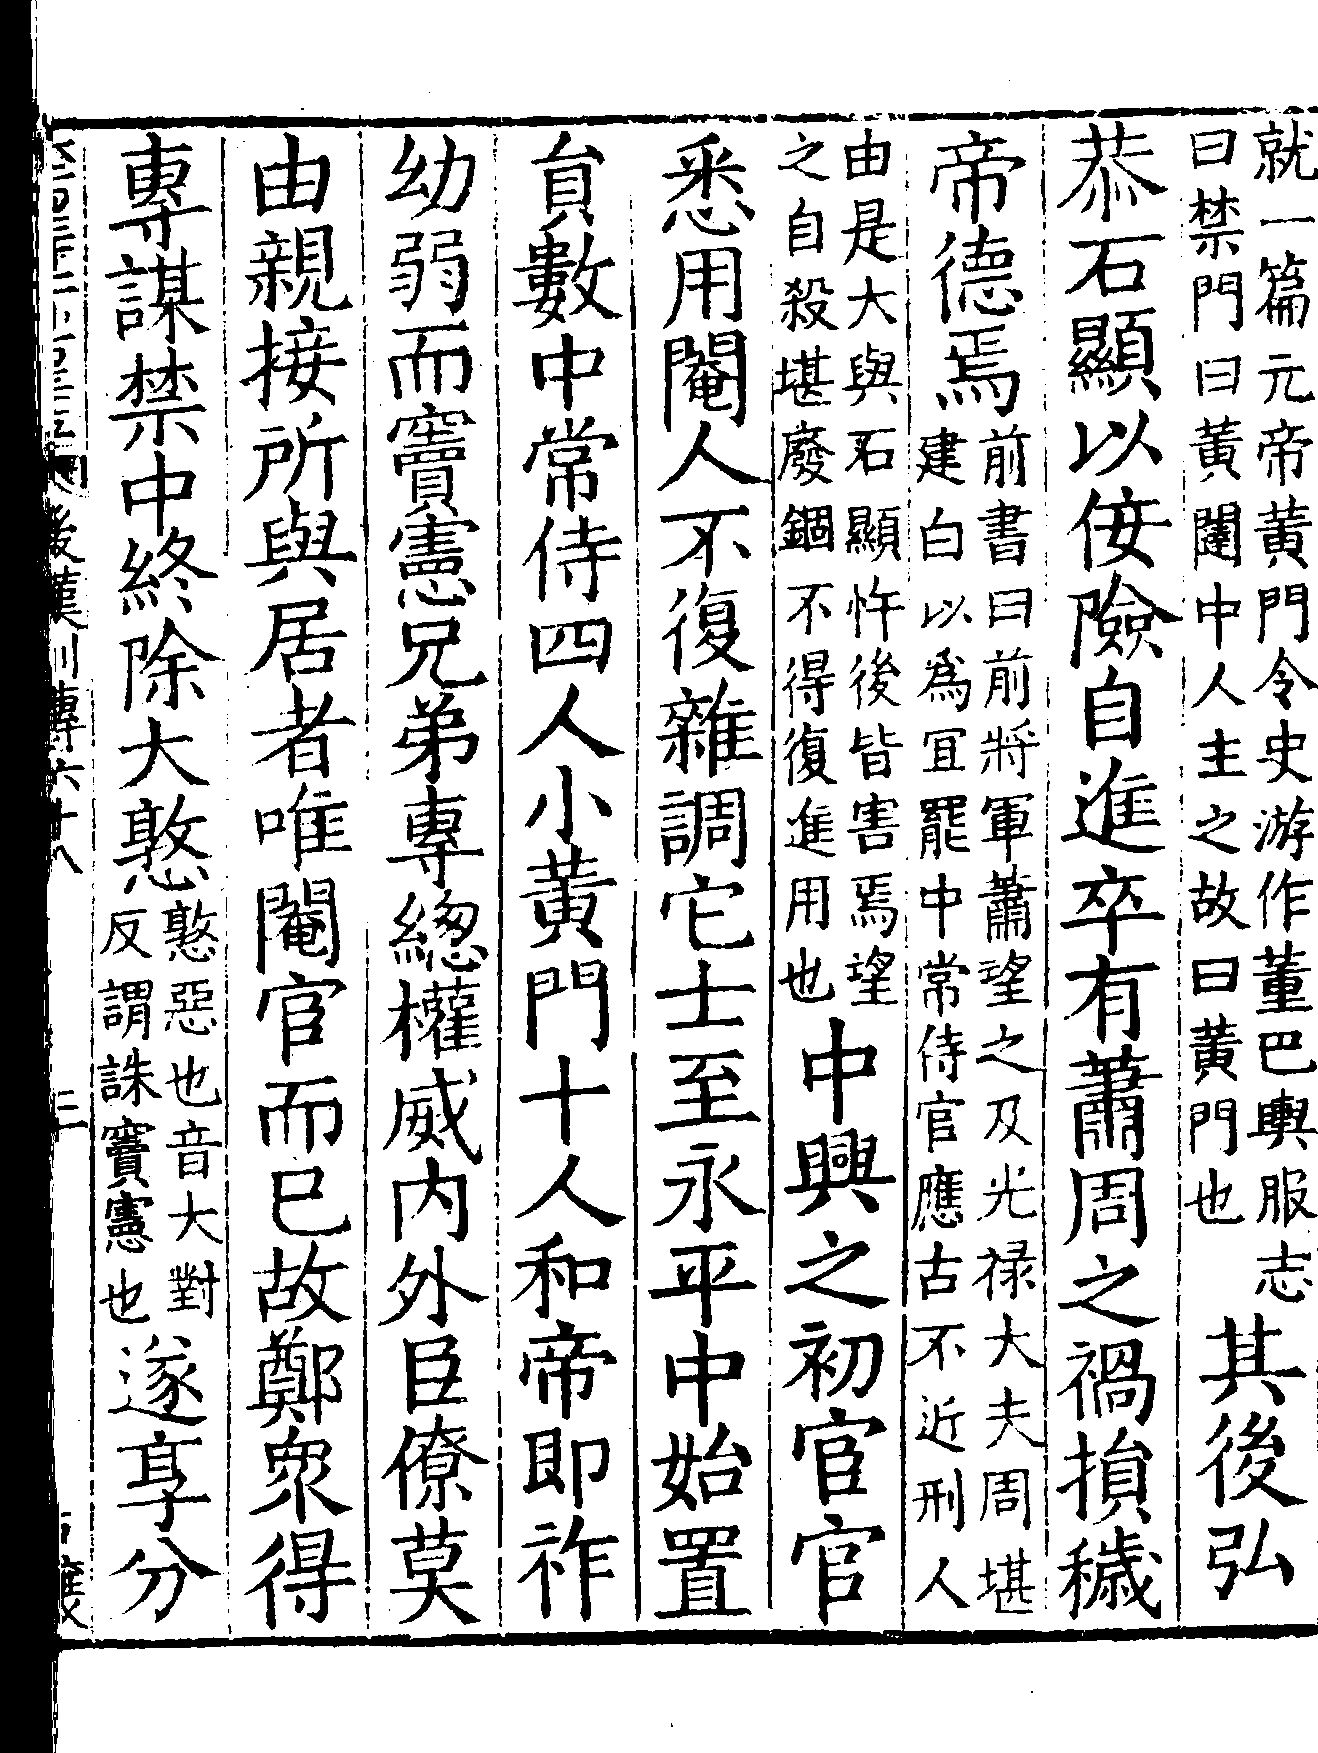 就一篇元帝黃門令史游作董巴輿服志
曰禁門曰黃闥中人主之故曰黃門也
其後弘
恭石顯以佞險自進卒有蕭周之禍損穢
帝德焉
前書曰前將軍蕭望之及光祿大夫周堪
建白以爲宜罷中常侍官應古不近刑人
由是大與石顯忤後皆害焉望
之自殺堪廢錮不得復進用也
中興之初宦官
悉用閹人不復雜調它士至永平中始置
貟數中常侍四人小黃門十人和帝即祚
幼弱而竇憲兄弟專緫權威内外臣僚莫
由親接所與居者唯閹宦而已故鄭眾得
專謀禁中終除大憝
憝惡也音大對
反謂誅竇憲也
遂享分
後漢列傳六十八
三